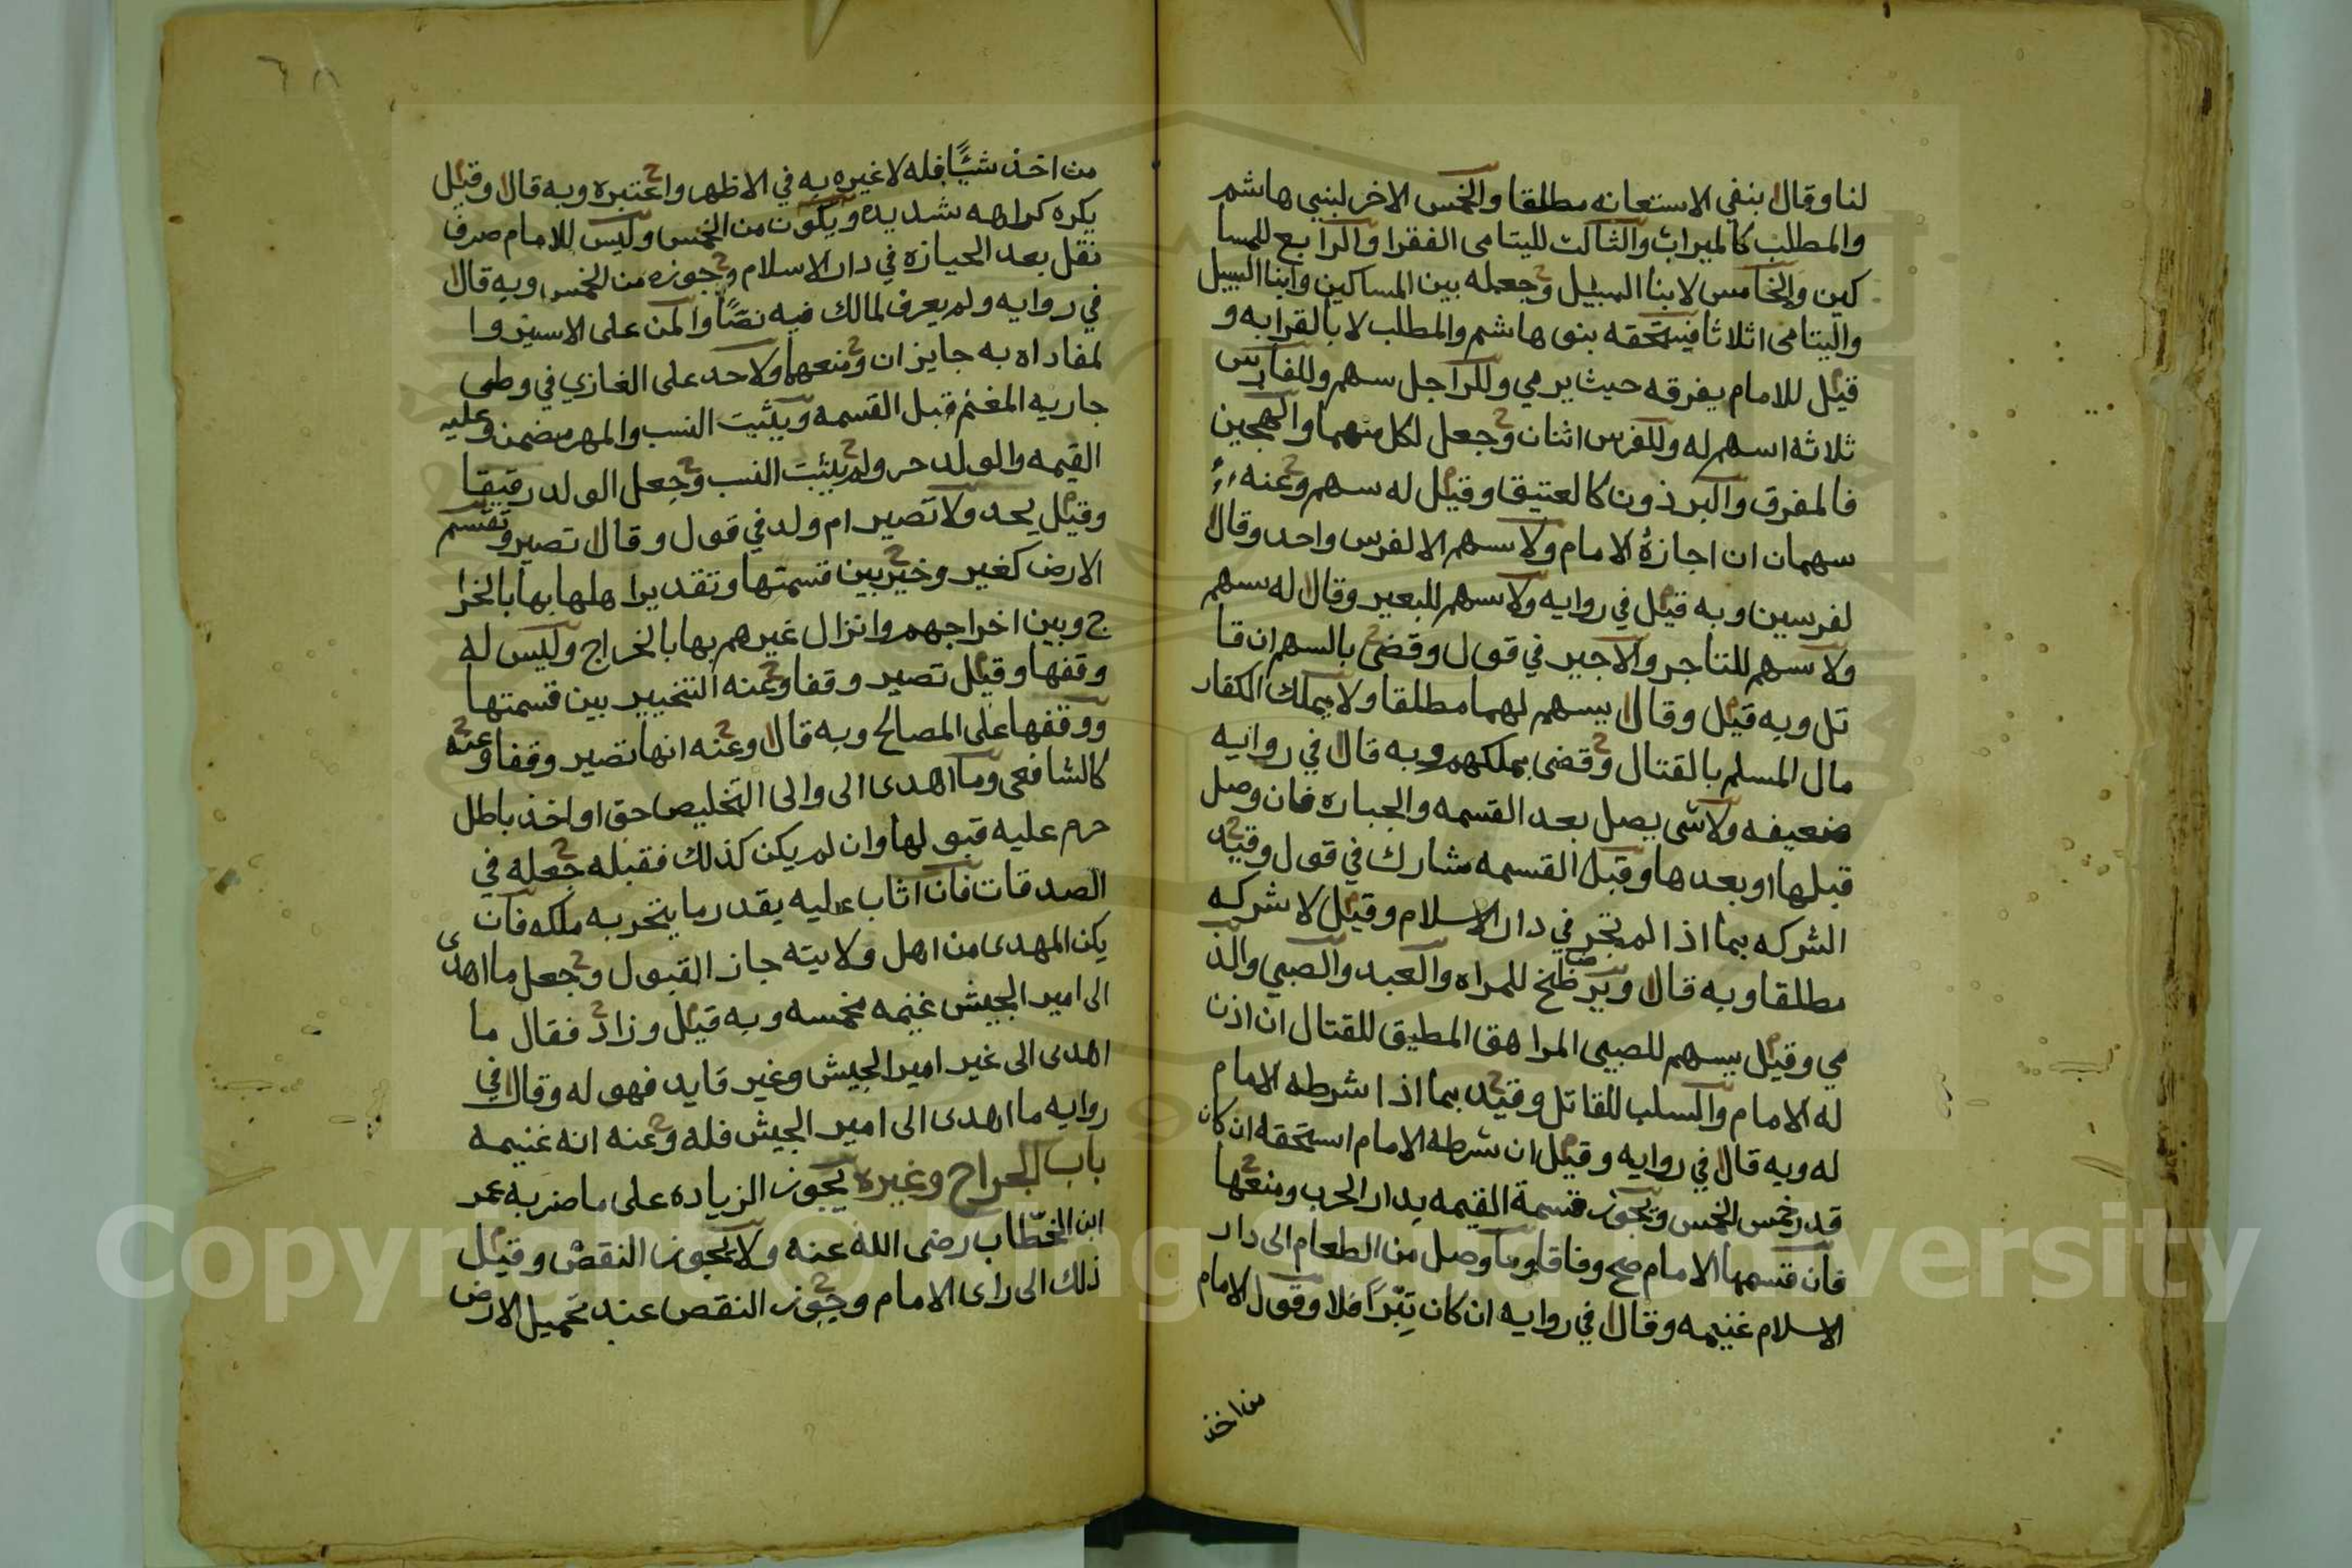 لنا وقال بنفي الاستعانه مطلقا والخمس الاخر لبني هاشم
والمطلب كالميراث والثالث لليتامى الفقرا والرابع للمسا
كين والخامس لابنا السبيل وجعله بين المساكين وابنا السبيل
واليتامى اثلاثا فيستحقه بنو هاشم والمطلب لا بالقرابه و
قيل للامام يفرقه حيث يرمي وللراجل سهم وللفارس
ثلاثه اسهم له وللفرس اثنان وجعل لكل منهما والهجين
فالمفرق والبرذون كالعتيق وقيل له سهم وعنه
سهمان ان اجازه الامام ولا سهم الا لفرس واحد وقال
لفرسين وبه قيل في روايه ولا سهم للبعير وقال له سهم
ولا سهم للتاجر والاجير في قول وقضى بالسهم ان قا
تل وبه قيل وقال يسهم لهما مطلقا ولا يملك الكفار
مال المسلم بالقتال وقضى بملكهم وبه قال في روايه
ضعيفه ولا شى يصل بعد القسمه والحيازه فان وصل
قبلها او بعدها وقبل القسمه مشارك في قول وقيد
الشركه بما اذا لم تحز في دار الاسلام وقيل لا شركه
مطلقا وبه قال ويرضخ للمراه والعبد والصبي والذ
مي وقيل يسهم للصبي المراهق المطيق للقتال ان اذن
له الامام والسلب للقاتل وقيد بما اذا شرطه الامام
له وبه قال في روايه وقيل ان شرطه الامام استحقه ان كان
قدر خمس الخمس وتجوز قسمة القيمه بدار الحرب ومنعها
فان قسمها الامام صح وفاقا وما وصل من الطعام الى دار
الاسلام غنيمه وقال في روايه ان كان تبرًا فلا وقول الامام
من اخذ
٦٨
من اخذ شيًا فله لا غيره به في الاظهر واعتبره وبه قال وقيل
يكره كراهه شديده ويكون من الخمس وليس للامام صرف
نفل بعد الحيازه في دار الاسلام وجوزه من الخمس وبه قال
في روايه ولم يعرف لمالك فيه نصًا والمن على الاسير وا
لمفاداه به جايزان ومنعهما ولا حد على الغازي في وطى
جاريه المغنم قبل القسمه ويثبت النسب والمهر مضمن وعليه
القيمه والولد حر ولم يثبت النسب وجعل الولد رقيقا
وقيل يحد ولا تصير ام ولد في قول وقال تصير وتقسم
الارض كغير وخير بين قسمتها وتقدير اهلها بها بالخرا
ج وبين اخراجهم وانزال غيرهم بها بالخراج وليس له
وقفها وقيل تصير وقفا وعنه التخيير بين قسمتها
ووقفها على المصالح وبه قال وعنه انها تصير وقفا وعنه
كالشافعى وما اهدى الى والى التخليص حق او اخذ باطل
حرم عليه قبولها وان لم يكن كذلك فقبله جعله في
الصدقات فان اثاب عليه بقدر ما يتحر به ملكه فان
يكن المهدى من اهل ولايته جاز القبول وجعل ما اهدى
الى امير الجيش غنيمه مخمسه وبه قيل وزاد فقال ما
اهدى الى غير امير الجيش وغير قايد فهو له وقال في
روايه ما اهدى الى امير الجيش فله وعنه انه غنيمه
باب الخراج وغيره يجوز الزياده على ما ضربه عمر
ابن الخطاب رضى الله عنه ولا يجوز النقص وقيل
ذلك الى راى الامام وجوز النقص عند تحميل الارض
Copyright © King Saud University